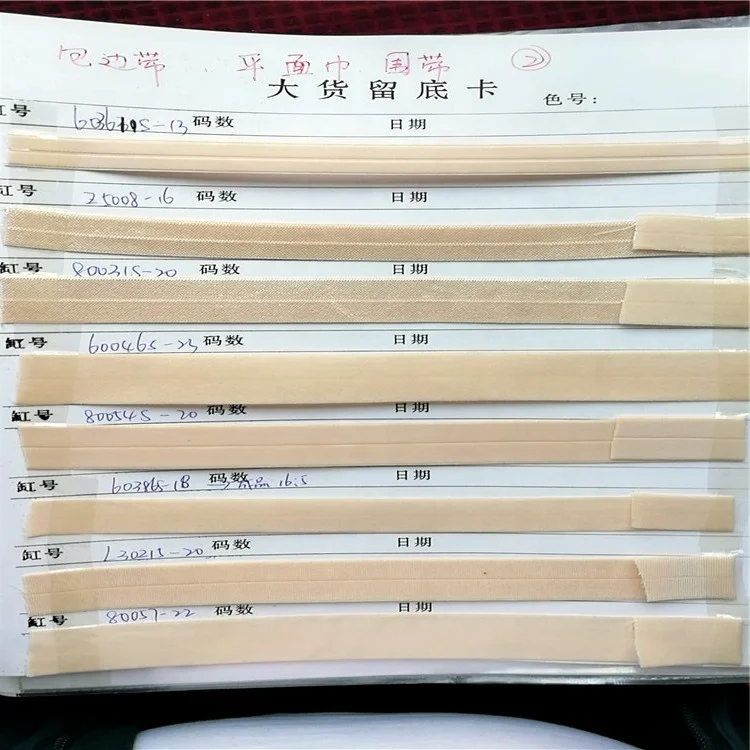 包边带、平面巾 围带 ②
大货留底卡 色号:
缸号 码数 日期
缸号 25008-16 码数 日期
缸号 80031S-20 码数 日期
缸号 60046S-23 码数 日期
缸号 80054S-20 码数 日期
缸号 60386S-18 码数 成品 16.5 日期
缸号 L3021S-20 码数 日期
缸号 80057-22 码数 日期